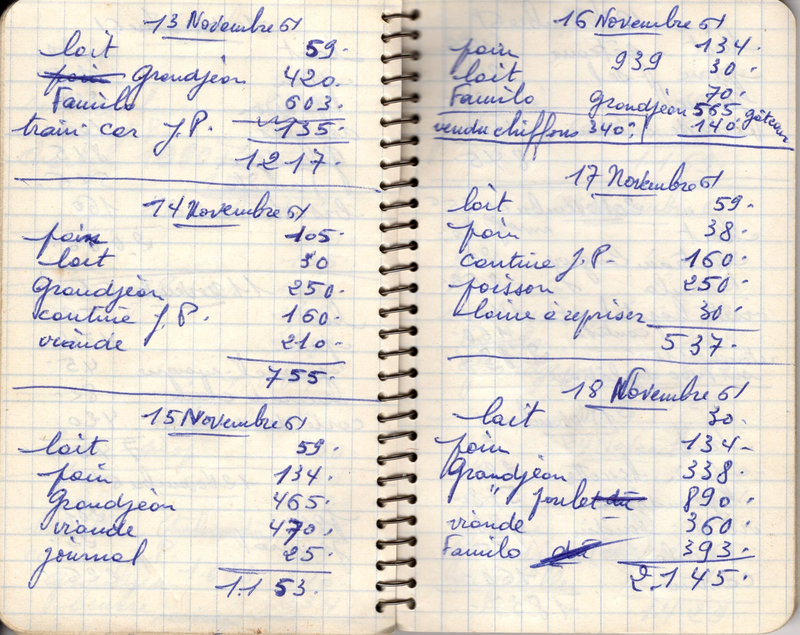 13 Novembre 61
lait 59.
pain Grandjean 420.
Familo 603.
train car J.P. 135.
1217.
14 Novembre 61
pain 105.
lait 30
Grandjean 250.
cantine J.P. 160.
viande 210.
755.
15 Novembre 61
lait 59.
pain 134.
Grandjean 465.
viande 470.
journal 25.
1.153.
16 Novembre 61
pain 134.
lait 939 30.
70.
Familo Grandjean 565 gâteaux
vendu chiffons 340. 140.
17 Novembre 61
lait 59.
pain 38.
cantine J.P. 160.
poisson 250.
laine à repriser 30.
537.
18 Novembre 61
lait 30.
pain 134.
Grandjean 338.
" poulet dû 890.
viande 360.
Familo dû 393.
2.145.